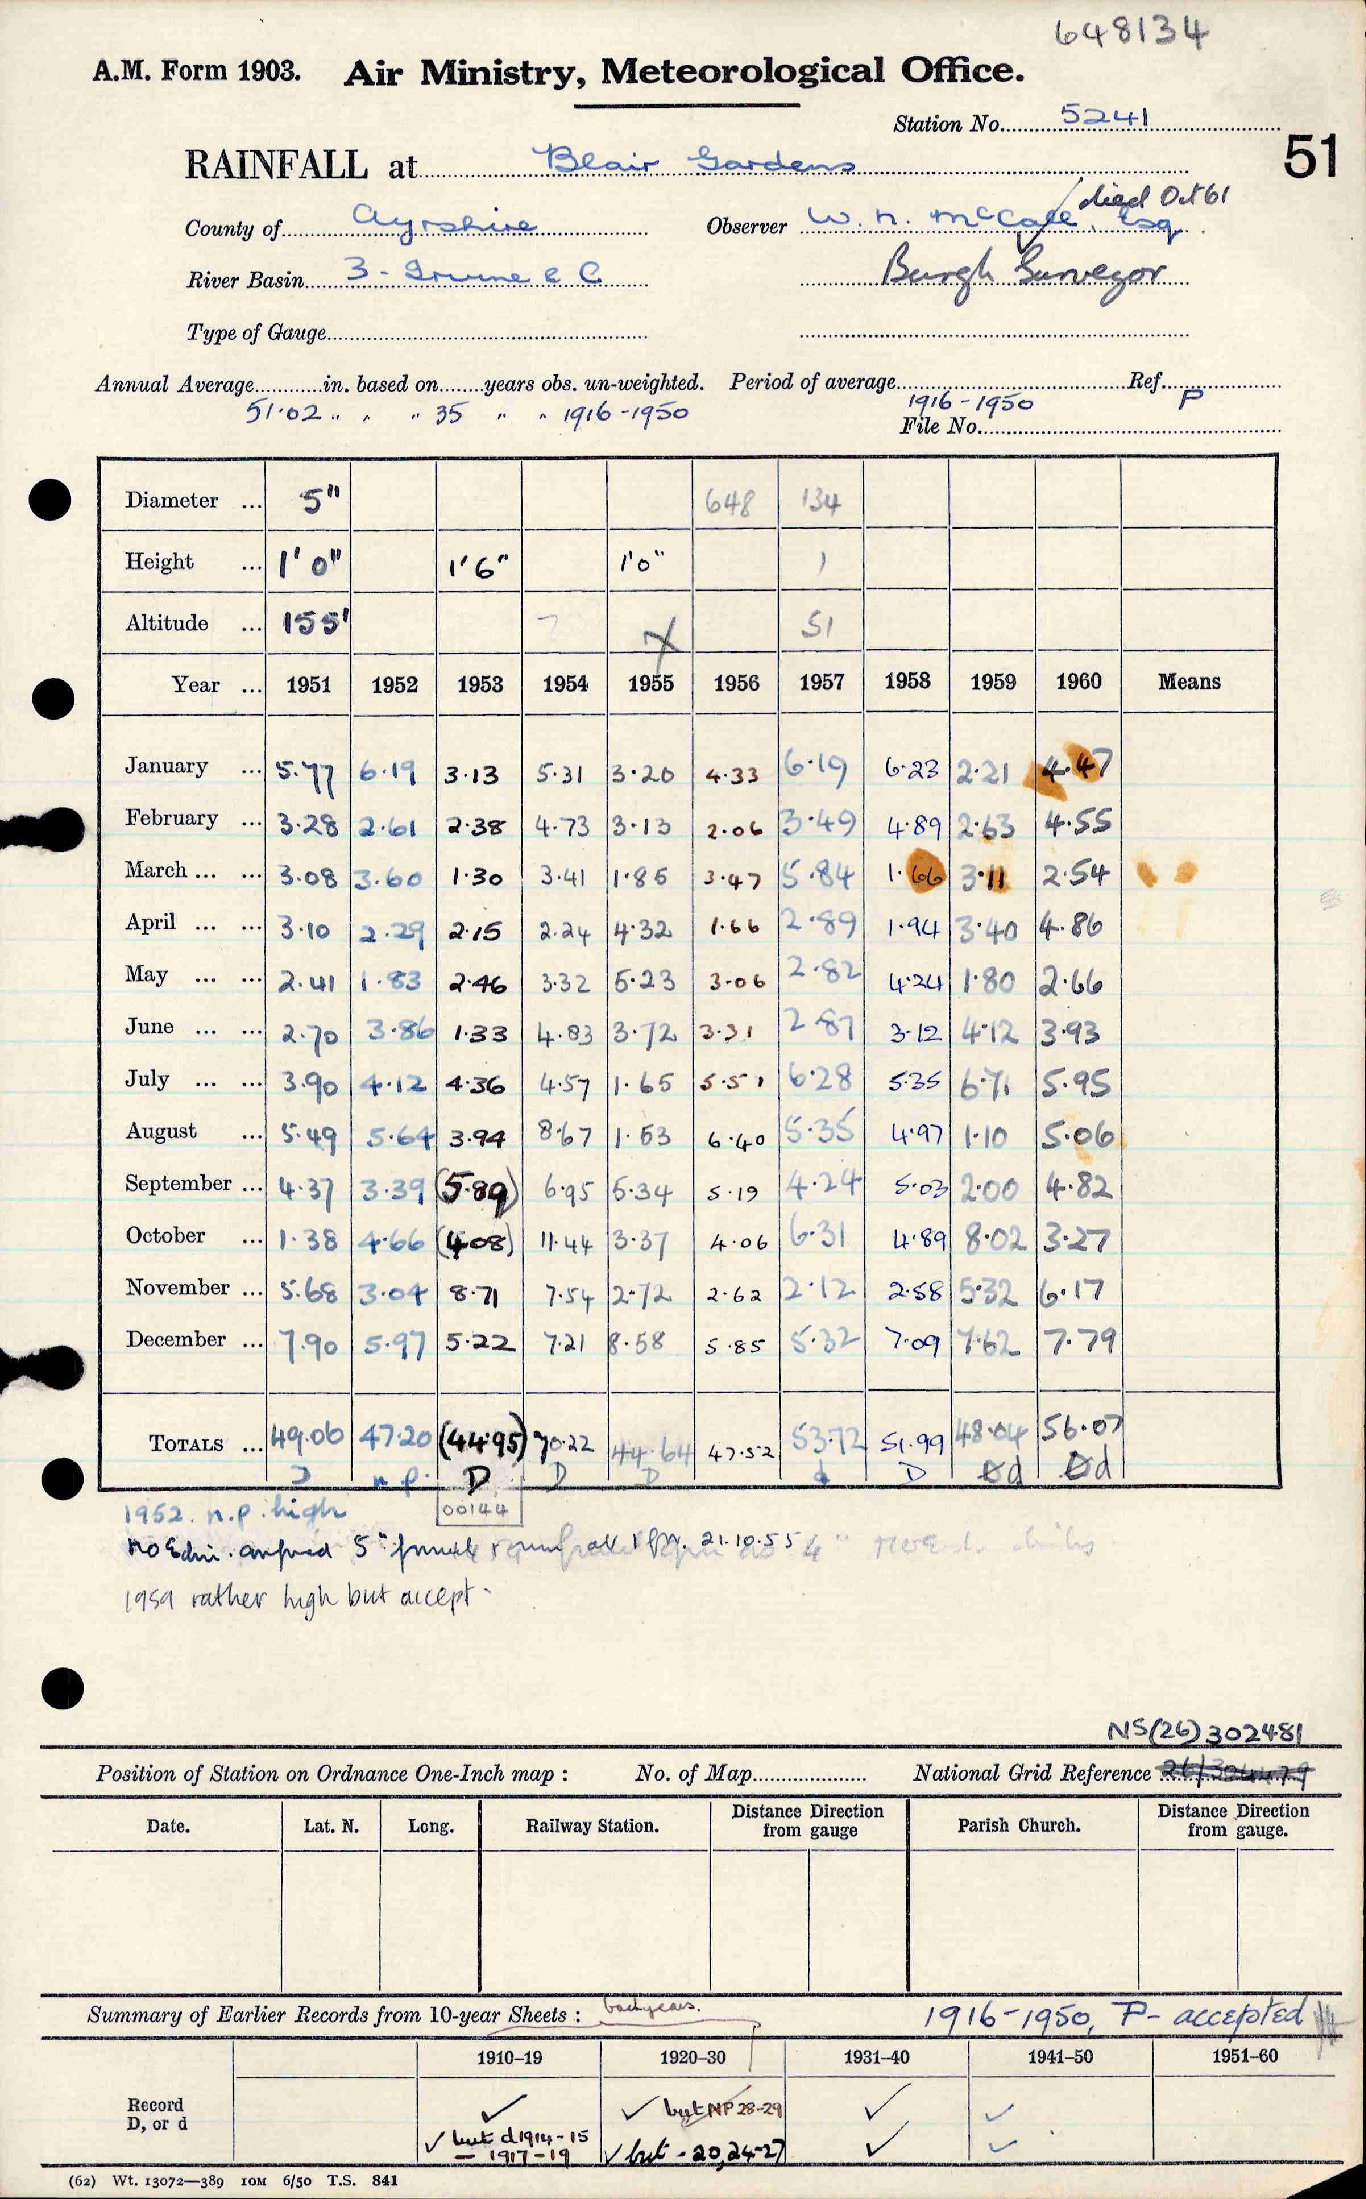 648134
A.M. Form 1903. Air Ministry, Meteorological Office.
Station No. 5241
51
RAINFALL at Blair Gardens
died Oct 61
County of Ayrshire Observer W. N. McCall, Esq.
River Basin 3 - Irvine & C Burgh Surveyor
Type of Gauge
Annual Average in. based on years obs. un-weighted. Period of average Ref.
51.02 " " " 35 " " 1916-1950 1916-1950 P
File No.
Diameter ... 5" 648 134
Height ... 1'0" 1'6" 1'0" 1
Altitude ... 155' 7 X 51
Year ... 1951 1952 1953 1954 1955 1956 1957 1958 1959 1960 Means
January ... 5.77 6.19 3.13 5.31 3.20 4.33 6.19 6.23 2.21 4.47
February ... 3.28 2.61 2.38 4.73 3.13 2.06 3.49 4.89 2.63 4.55
March ... ... 3.08 3.60 1.30 3.41 1.85 3.47 5.84 1.66 3.11 2.54
April ... ... 3.10 2.29 2.15 2.24 4.32 1.66 2.89 1.94 3.40 4.86
May ... ... 2.41 1.83 2.46 3.32 5.23 3.06 2.82 4.24 1.80 2.66
June ... ... 2.70 3.86 1.33 4.83 3.72 3.31 2.87 3.12 4.12 3.93
July ... ... 3.90 4.12 4.36 4.57 1.65 5.51 6.28 5.35 6.71 5.95
August ... 5.49 5.64 3.94 8.67 1.53 6.40 5.35 4.97 1.10 5.06
September ... 4.37 3.39 (5.89) 6.95 5.34 5.19 4.24 5.03 2.00 4.82
October ... 1.38 4.66 (4.08) 11.44 3.37 4.06 6.31 4.89 8.02 3.27
November ... 5.68 3.04 8.71 7.54 2.72 2.62 2.12 2.58 5.32 6.17
December ... 7.90 5.97 5.22 7.21 8.58 5.85 5.32 7.09 7.62 7.79
TOTALS ... 49.06 47.20 (44.95) 70.22 44.64 47.52 53.72 51.99 48.04 56.07
D n.p. D D D d D d d
1952. n.p. high 00144
5" 21.10.55
1959 rather high but accept.
NS(26)302481
Position of Station on Ordnance One-Inch map : No. of Map National Grid Reference
Date. Lat. N. Long. Railway Station. Distance Direction from gauge Parish Church. Distance Direction from gauge.
Summary of Earlier Records from 10-year Sheets : 1916-1950, P- accepted
1910–19 1920–30 1931–40 1941–50 1951–60
Record ✓ ✓ but NP 28-29 ✓ ✓
D, or d ✓ but d 1914-15 – 1917-19 ✓ but - 20,24-27 ✓ ✓
(62) Wt. 13072—389 10M 6/50 T.S. 841